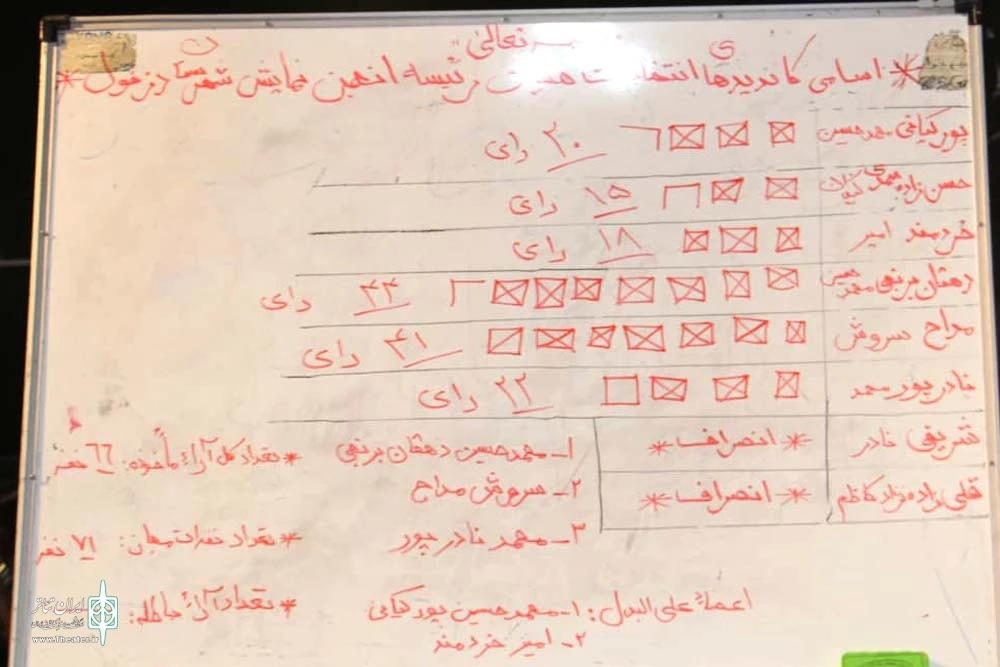 تعالی
* اسامی کاندیدها انتخابات هیئت رئیسه انجمن نمایش شهرستان دزفول *
پورکیانی محمدحسین ۲۰ رای
حسن زاده ۱۵ رای
خردمند امیر ۱۸ رای
دهقان برنجی محمدحسین ۴۴ رای
مداح سروش ۴۱ رای
نادرپور محمد ۲۲ رای
شریفی نادر * انصراف *
قلمی زاده نژاد کاظم * انصراف *
۱- محمدحسین دهقان برنجی
۲- سروش مداح
۳- محمد نادرپور
اعضاء علی البدل: ۱- محمدحسین پورکیانی
۲- امیر خردمند
* تعداد کل آراء مأخوذه: ۶۶ نفر
* تعداد نفرات ۷۱ نفر
* تعداد آراء باطله:
ایران تئاتر
www.Theater.ir